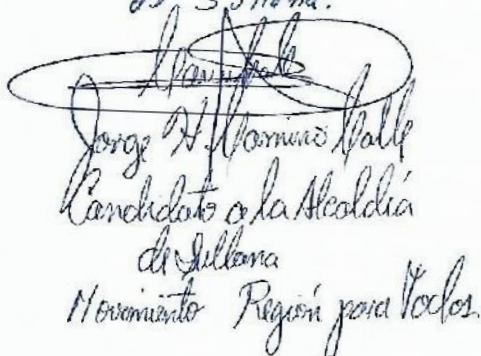 de Sullana.
Jorge H. Camino Calle
Candidato a la Alcaldía
de Sullana
Movimiento Región para Todos.